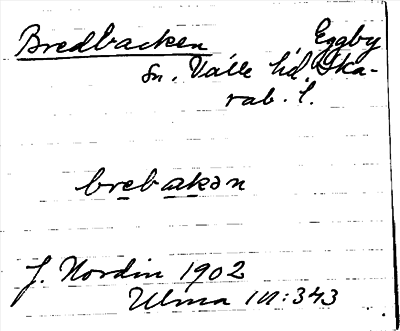 Bredbacken Eggby
sn. Valle hd. Ska-
rab. l.
brebakən
J. Nordin 1902
Ulma 111:343